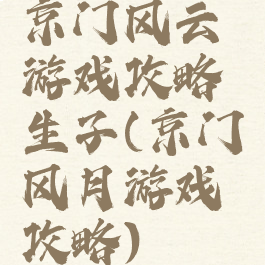 京门风云
游戏攻略
生子(京门
风月游戏
攻略)